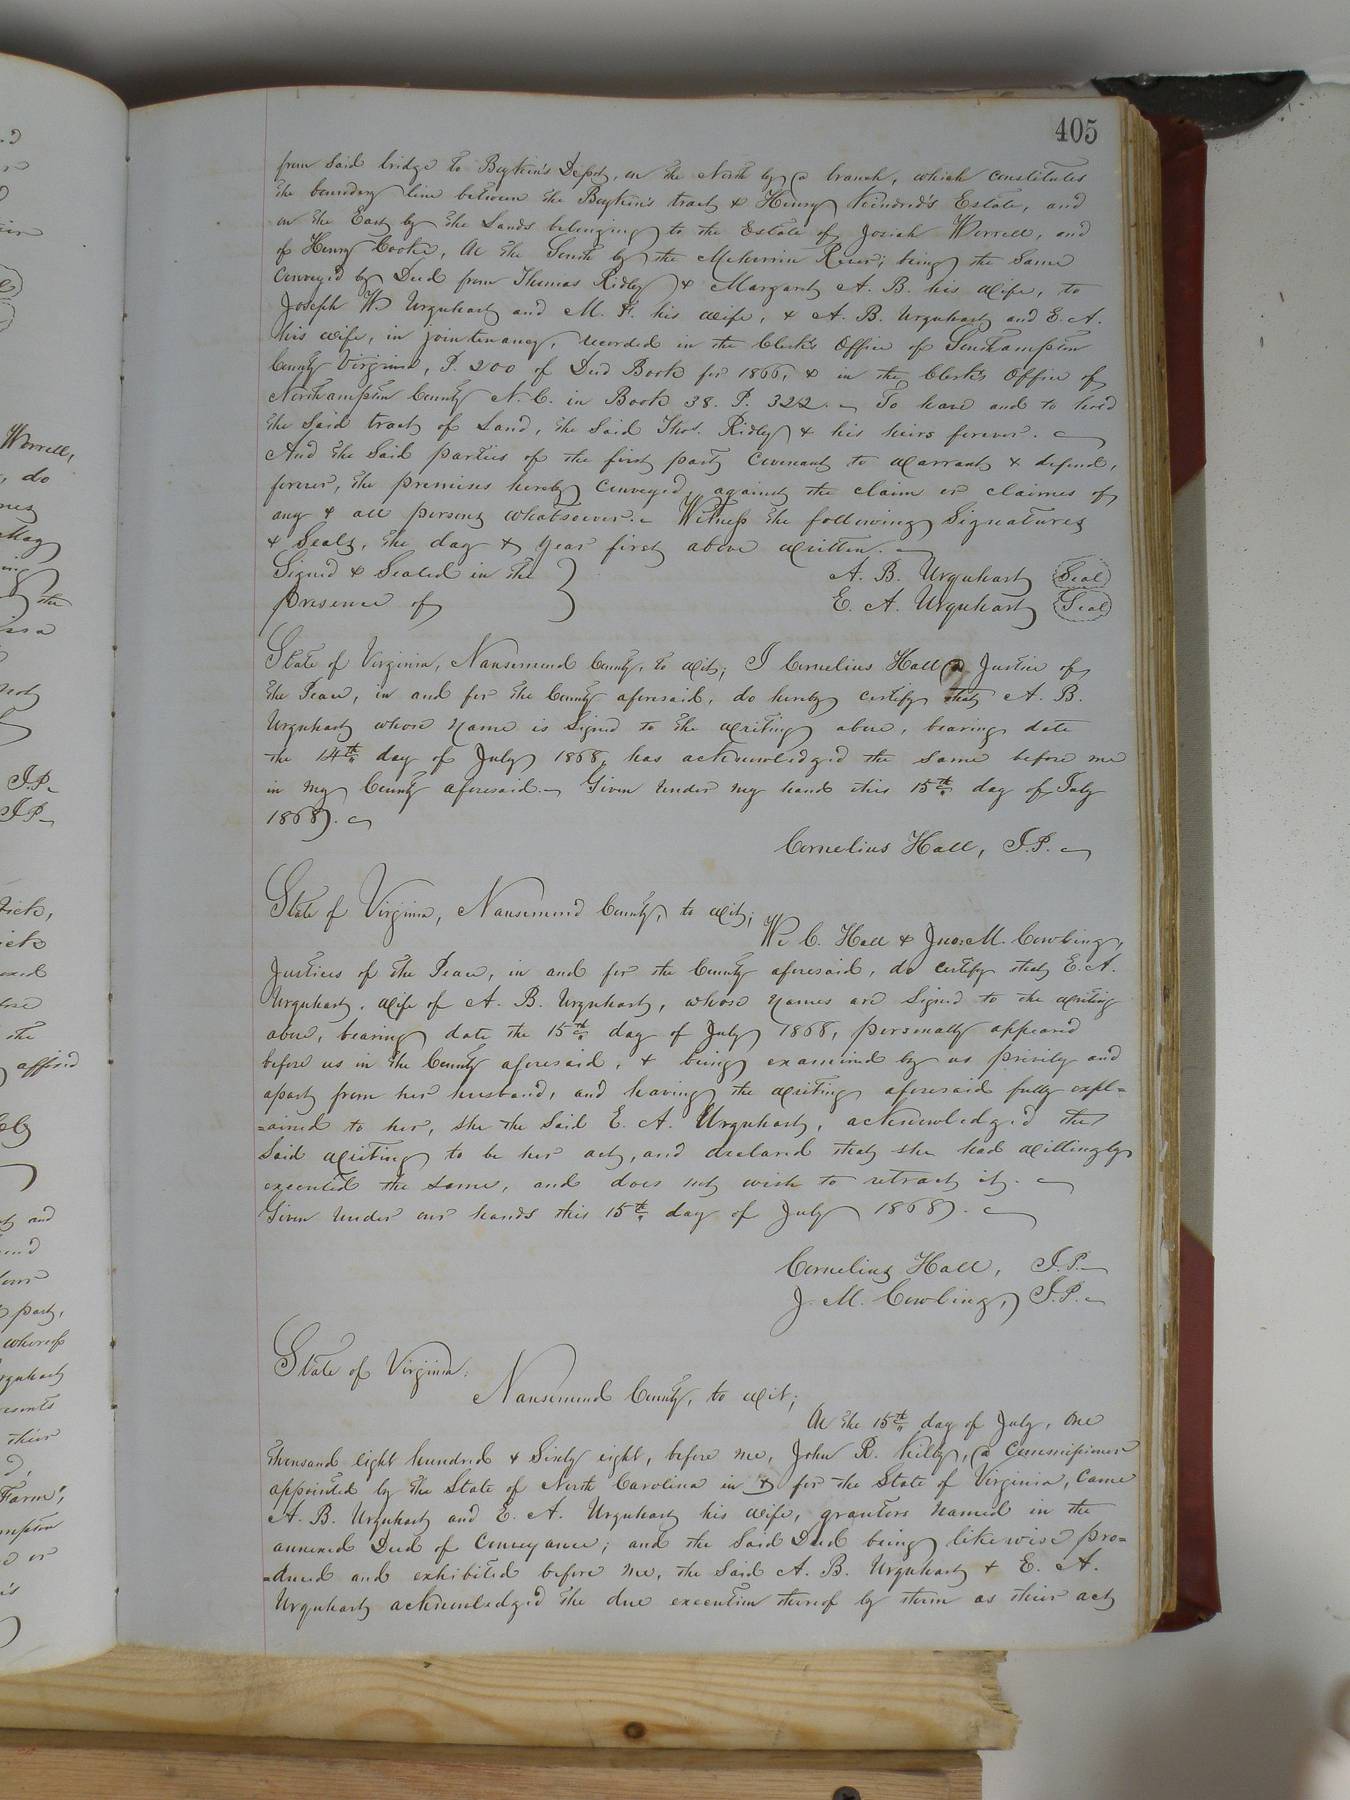 405
from said bridge to Boykin's Depot, on the North by a branch, which constitutes
the boundary line between the Boykin's tract & Henry Kindred's Estate, and
on the East by the Lands belonging to the Estate of Josiah Worrell, and
of Henry Cooke, On the South by the Meherrin River; being the same
conveyed by Deed from Thomas Ridley & Margaret A. B. his wife, to
Joseph W Urquhart and M. F. his wife, & A. B. Urquhart and E. A.
his wife, in joint tenancy, recorded in the Clerk's Office of Southampton
County Virginia, P. 200 of Deed Book for 1866, & in the Clerk's Office of
Northampton County N. C. in Book 38. P. 322. To have and to hold
the said tract of Land, the said Thos. Ridley & his heirs forever.
And the said parties of the first part covenant to warrant & defend,
forever, the premises hereby conveyed, against the claim or claims of
any & all persons whatsoever. Witness the following Signatures
& Seals, the day & year first above written.
Signed & Sealed in the
presence of
A. B. Urquhart Seal
E. A. Urquhart Seal
State of Virginia, Nansemond County, to wit; I Cornelius Hall a Justice of
the Peace, in and for the County aforesaid, do hereby certify that A. B.
Urquhart whose name is Signed to the writing above, bearing date
the 14th day of July 1868, has acknowledged the same before me
in my County aforesaid. Given under my hand this 15th day of July
1868.
Cornelius Hall, J.P.
State of Virginia, Nansemond County, to wit;
We C. Hall & Jno: M. Cowling,
Justices of the Peace, in and for the County aforesaid, do certify that E. A.
Urquhart, wife of A. B. Urquhart, whose names are Signed to the writing
above, bearing date the 15th day of July 1868, personally appeared
before us in the County aforesaid, & being examined by us privily and
apart from her husband, and having the writing aforesaid fully expl=
=ained to her, she the said E. A. Urquhart, acknowledged the
said writing to be her act, and declared that she had willingly
executed the same, and does not wish to retract it.
Given under our hands this 15th day of July 1868.
Cornelius Hall, J.P.
J. M. Cowling, J.P.
State of Virginia.
Nansemond County, to wit;
On the 15th day of July, One
thousand eight hundred & Sixty eight, before me, John R. Kilby, a Commissioner
appointed by the State of North Carolina in & for the State of Virginia, came
A. B. Urquhart and E. A. Urquhart his wife, grantors named in the
annexed Deed of Conveyance; and the said Deed being likewise pro=
=duced and exhibited before me, the said A. B. Urquhart & E. A.
Urquhart acknowledged the due execution thereof by them as their act